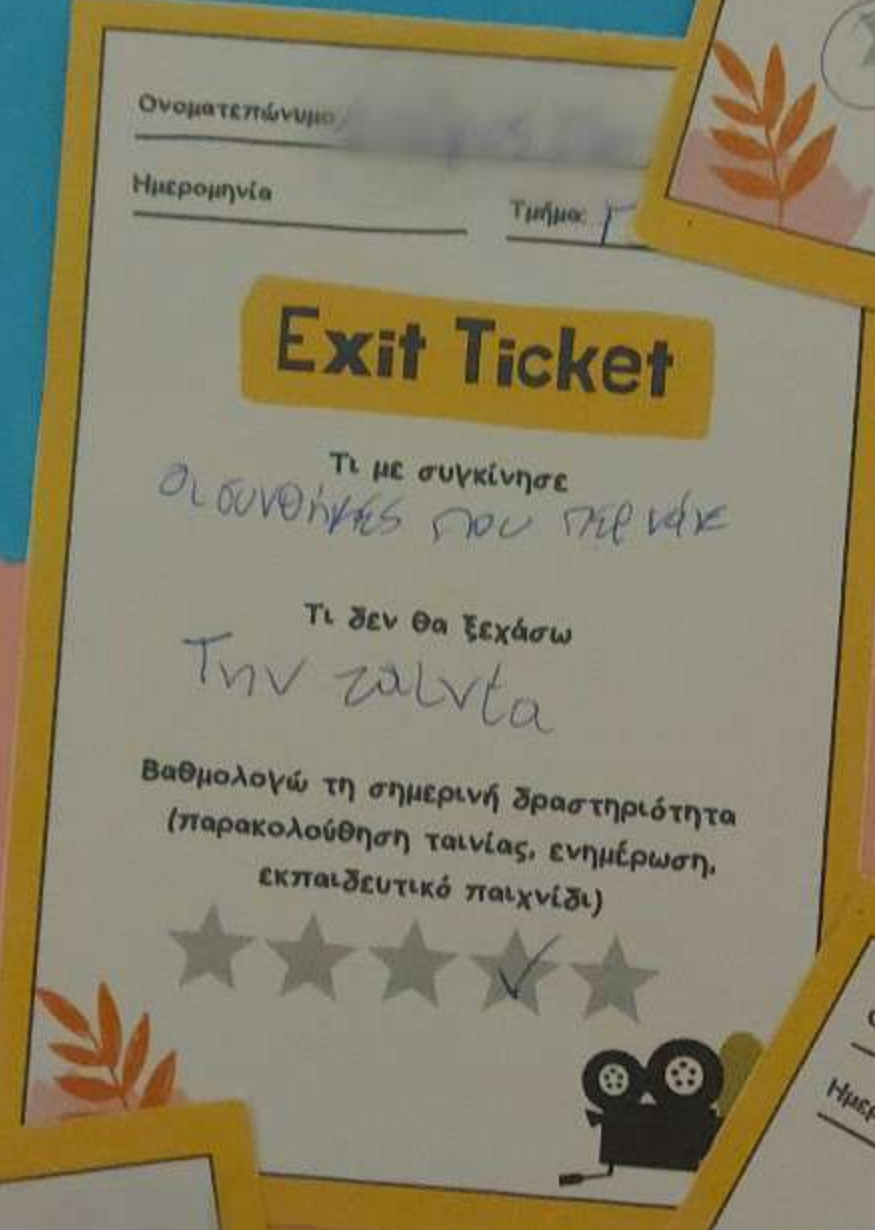 Ονοματεπώνυμο
Ημερομηνία
Τμήμα: Γ
Exit Ticket
Τι με συγκίνησε
Οι συνθήκες που περνάκ
Τι δεν θα ξεχάσω
Την ταιντα
Βαθμολογώ τη σημερινή δραστηριότητα
(παρακολούθηση ταινίας, ενημέρωση,
εκπαιδευτικό παιχνίδι)
Ημερ